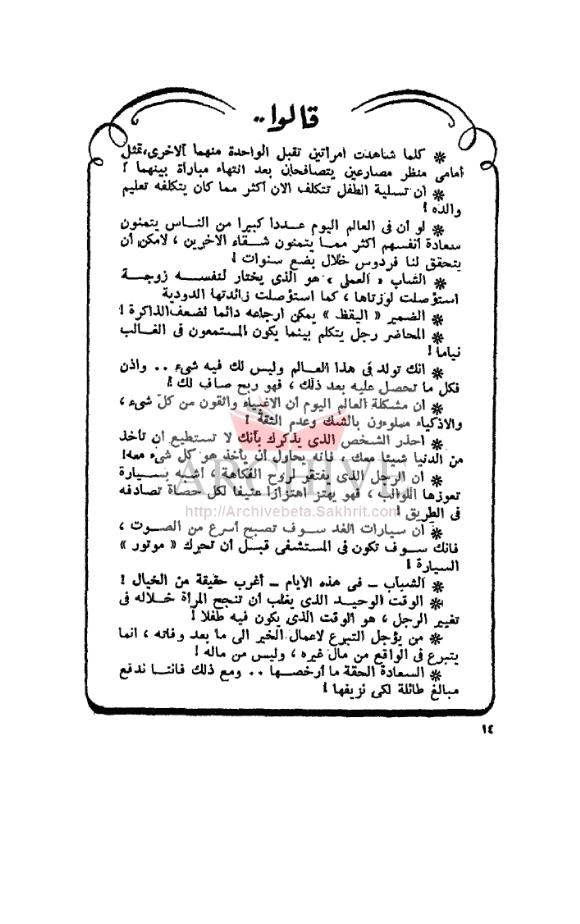 قالوا ..
* كلما شاهدت امرأتين تقبل الواحدة منهما الاخرى، تمثل
أمامى منظر مصارعين يتصافحان بعد انتهاء مباراة بينهما !
* أن تسلية الطفل تتكلف الان أكثر مما كان يتكلفه تعليم
والده !
* لو أن فى العالم اليوم عددا كبيرا من الناس يتمنون
سعادة أنفسهم أكثر مما يتمنون شقاء الآخرين ، لامكن أن
يتحقق لنا فردوس خلال بضع سنوات !
* الشاب « العملى » هو الذى يختار لنفسه زوجة
استؤصلت لوزتاها ، كما استؤصلت زائدتها الدودية
* الضمير « اليقظ » يمكن ارجاعه دائما لضعف الذاكرة !
* المحاضر رجل يتكلم بينما يكون المستمعون فى الغالب
نياما !
* انك تولد فى هذا العالم وليس لك فيه شىء .. واذن
فكل ما تحصل عليه بعد ذلك ، فهو ربح صاف لك !
* أن مشكلة العالم اليوم أن الاغبياء واثقون من كل شىء ،
والاذكياء مملوءون بالشك وعدم الثقة !
* احذر الشخص الذى يذكرك بأنك لا تستطيع أن تأخذ
من الدنيا شيئا معك ، فانه يحاول أن يأخذ هو كل شىء معه !
* أن الرجل الذى يفتقر لروح الفكاهة ، أشبه بسيارة
تعوزها اللوالب ، فهو يهتز اهتزازا عنيفا لكل حصاة تصادفه
فى الطريق !
* أن سيارات الغد سوف تصبح أسرع من الصوت ،
فانك سوف تكون فى المستشفى قبل أن تحرك « موتور »
السيارة !
* الشباب – فى هذه الايام – أغرب حقيقة من الخيال !
* الوقت الوحيد الذى يغلب أن تنجح المرأة خلاله فى
تغيير الرجل ، هو الوقت الذى يكون فيه طفلا !
* من يؤجل التبرع لاعمال الخير الى ما بعد وفاته ، انما
يتبرع فى الواقع من مال غيره ، وليس من ماله !
* السعادة الحقة ما أرخصها .. ومع ذلك فاننا ندفع
مبالغ طائلة لكى نزيفها !
١٤
ARCHIVE
http://Archivebeta.Sakhrit.com